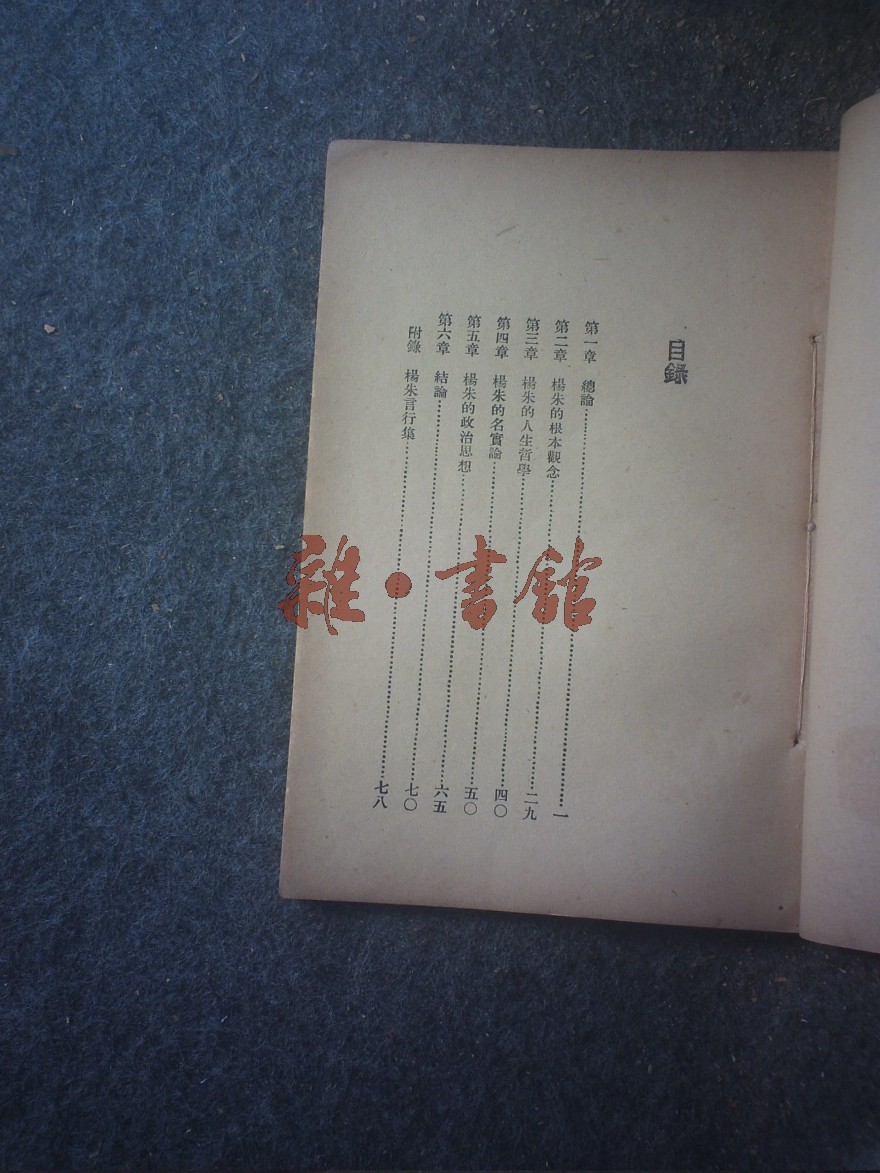 目錄
第一章 總論……一
第二章 楊朱的根本觀念……二九
第三章 楊朱的人生哲學……四〇
第四章 楊朱的名實論……五〇
第五章 楊朱的政治思想……六五
第六章 結論……七〇
附錄 楊朱言行集……七八
雜·書館